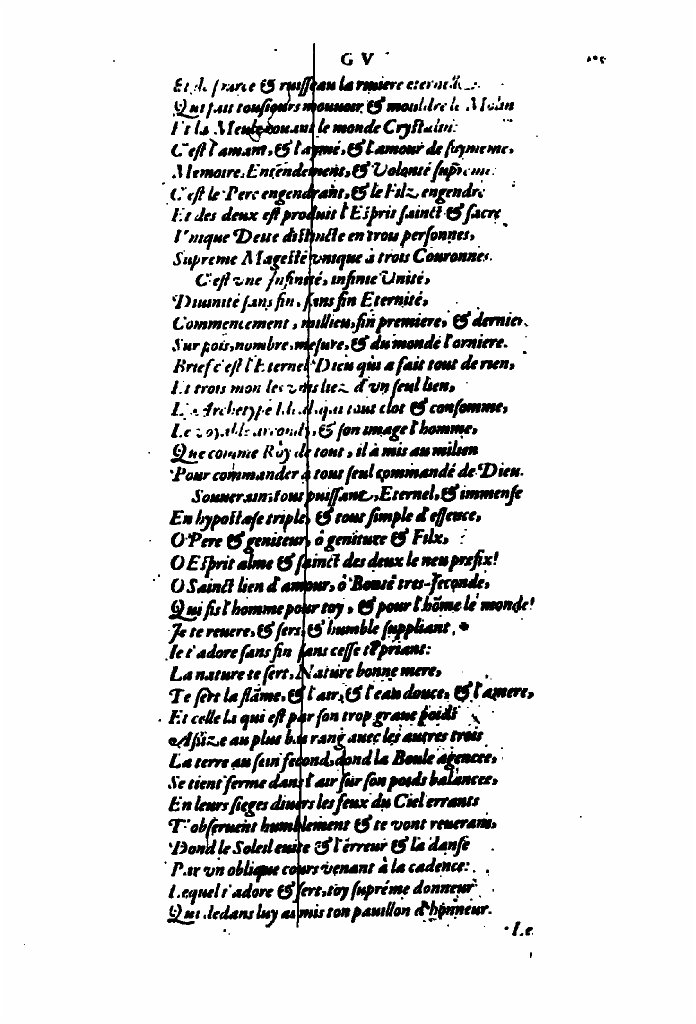 G V
Et de france & ruisseau la riuiere eternelle
Qui fait tousiours mouuoir, & mouldre le Molin
Et la Meule ouant le monde Crystalin:
C'est l'amant, & l'aymé, & l'amour de soymeme,
Memoire, Entendement, & Volonté supreme.
C'est le Pere engendrant, & le Filz engendré
Et des deux est produit l'Esprit sainct & sacré
Vnique Deité distincte en trois personnes,
Supreme Magesté vnique à trois Couronnes.
C'est vne Infinité, infinie Unité,
Diuinité sans fin, sans fin Eternité,
Commencement, millieu, fin premiere, & dernier,
Sur pois, nombre, mesure, & du monde l'orniere.
Brief c'est l'Eternel Dieu qui a fait tout de rien,
Et trois mondes vnis liez d'vn seul lien,
L'Archetype qui tout clot & consomme,
Le & son image l'homme,
Que comme Roy de tout, il à mis au milieu
Pour commander à tous seul commandé de Dieu.
Souuerain, tout puissant, Eternel, & immense
En hypostase triple, & tout simple d'essence,
O Pere & geniteur, ô geniture & Filx,
O Esprit alme & sainct des deux le neu prefix!
O Sainct lien d'amour, ô Bonté tres-feconde,
Qui fis l'homme pour toy, & pour l'hõme le monde!
Je te reuere, & sers, & humble suppliant,
Ie t'adore sans fin sans cesse te priant:
La nature te sert, Nature bonne mere,
Te sert la flãme, & l'air, & l'eau douce, & l'amere,
Et celle la qui est par son trop graue poids
Assize au plus bas rang auec les autres trois
La terre au sein fecond, dond la Boule agencee,
Se tient ferme dans l'air sur son poids balancee,
En leurs sieges diuers les feux du Ciel errants
T'obseruent humblement & te vont reuerans,
Dond le Soleil euite & l'érreur & la danse
Par vn oblique cours venant à la cadence:
Lequel t'adore & sert, toy supréme donneur
Qui dedans luy as mis ton pauillon d'honneur.
Le